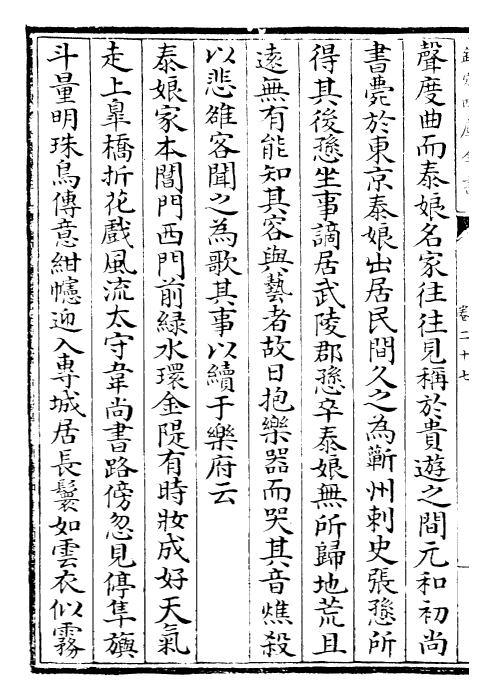 卷二十七
聲度曲而泰娘名家往往見稱於貴遊之間元和初尚
書薨於東京泰娘出居民間久之為蘄州刺史張愻所
得其後愻坐事謫居武陵郡愻卒泰娘無所歸地荒且
逺無有能知其容與藝者故日抱樂器而哭其音燋殺
以悲雒客聞之為歌其事以續于樂府云
泰娘家本閶門西門前緑水環金隄有時妝成好天氣
走上臯橋折花戲風流太守韋尚書路傍忽見停隼旟
斗量明珠鳥傳意紺幰迎入專城居長鬟如雲衣似霧